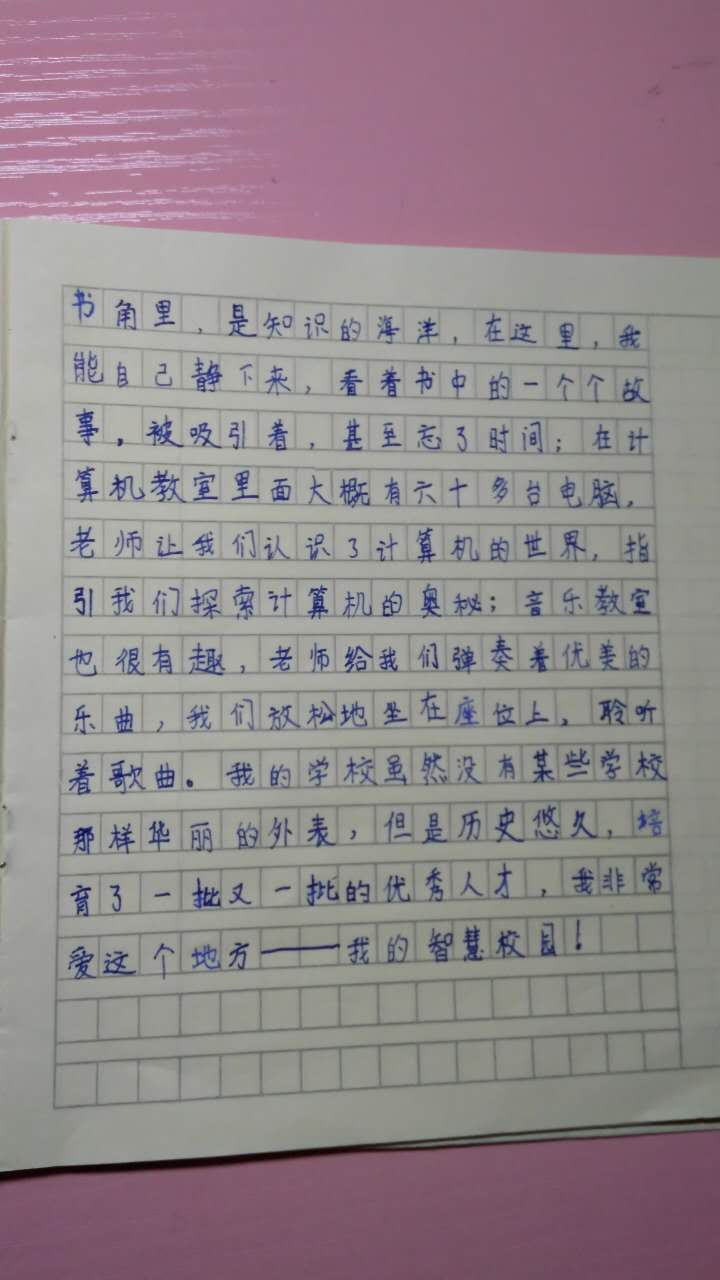 书角里，是知识的海洋，在这里，我
能自己静下来，看着书中的一个个故
事，被吸引着，甚至忘了时间；在计
算机教室里面大概有六十多台电脑，
老师让我们认识了计算机的世界，指
引我们探索计算机的奥秘；音乐教室
也很有趣，老师给我们弹奏着优美的
乐曲，我们放松地坐在座位上，聆听
着歌曲。我的学校虽然没有某些学校
那样华丽的外表，但是历史悠久，培
育了一批又一批的优秀人才，我非常
爱这个地方——我的智慧校园！